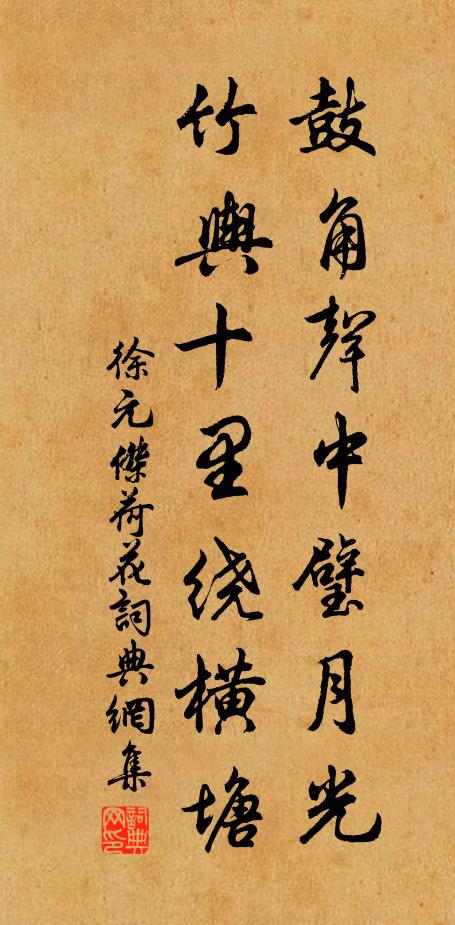 鼓角聲中璧月光
竹輿十里绕橫塘
徐元傑荷花詞典網集
詞典网印